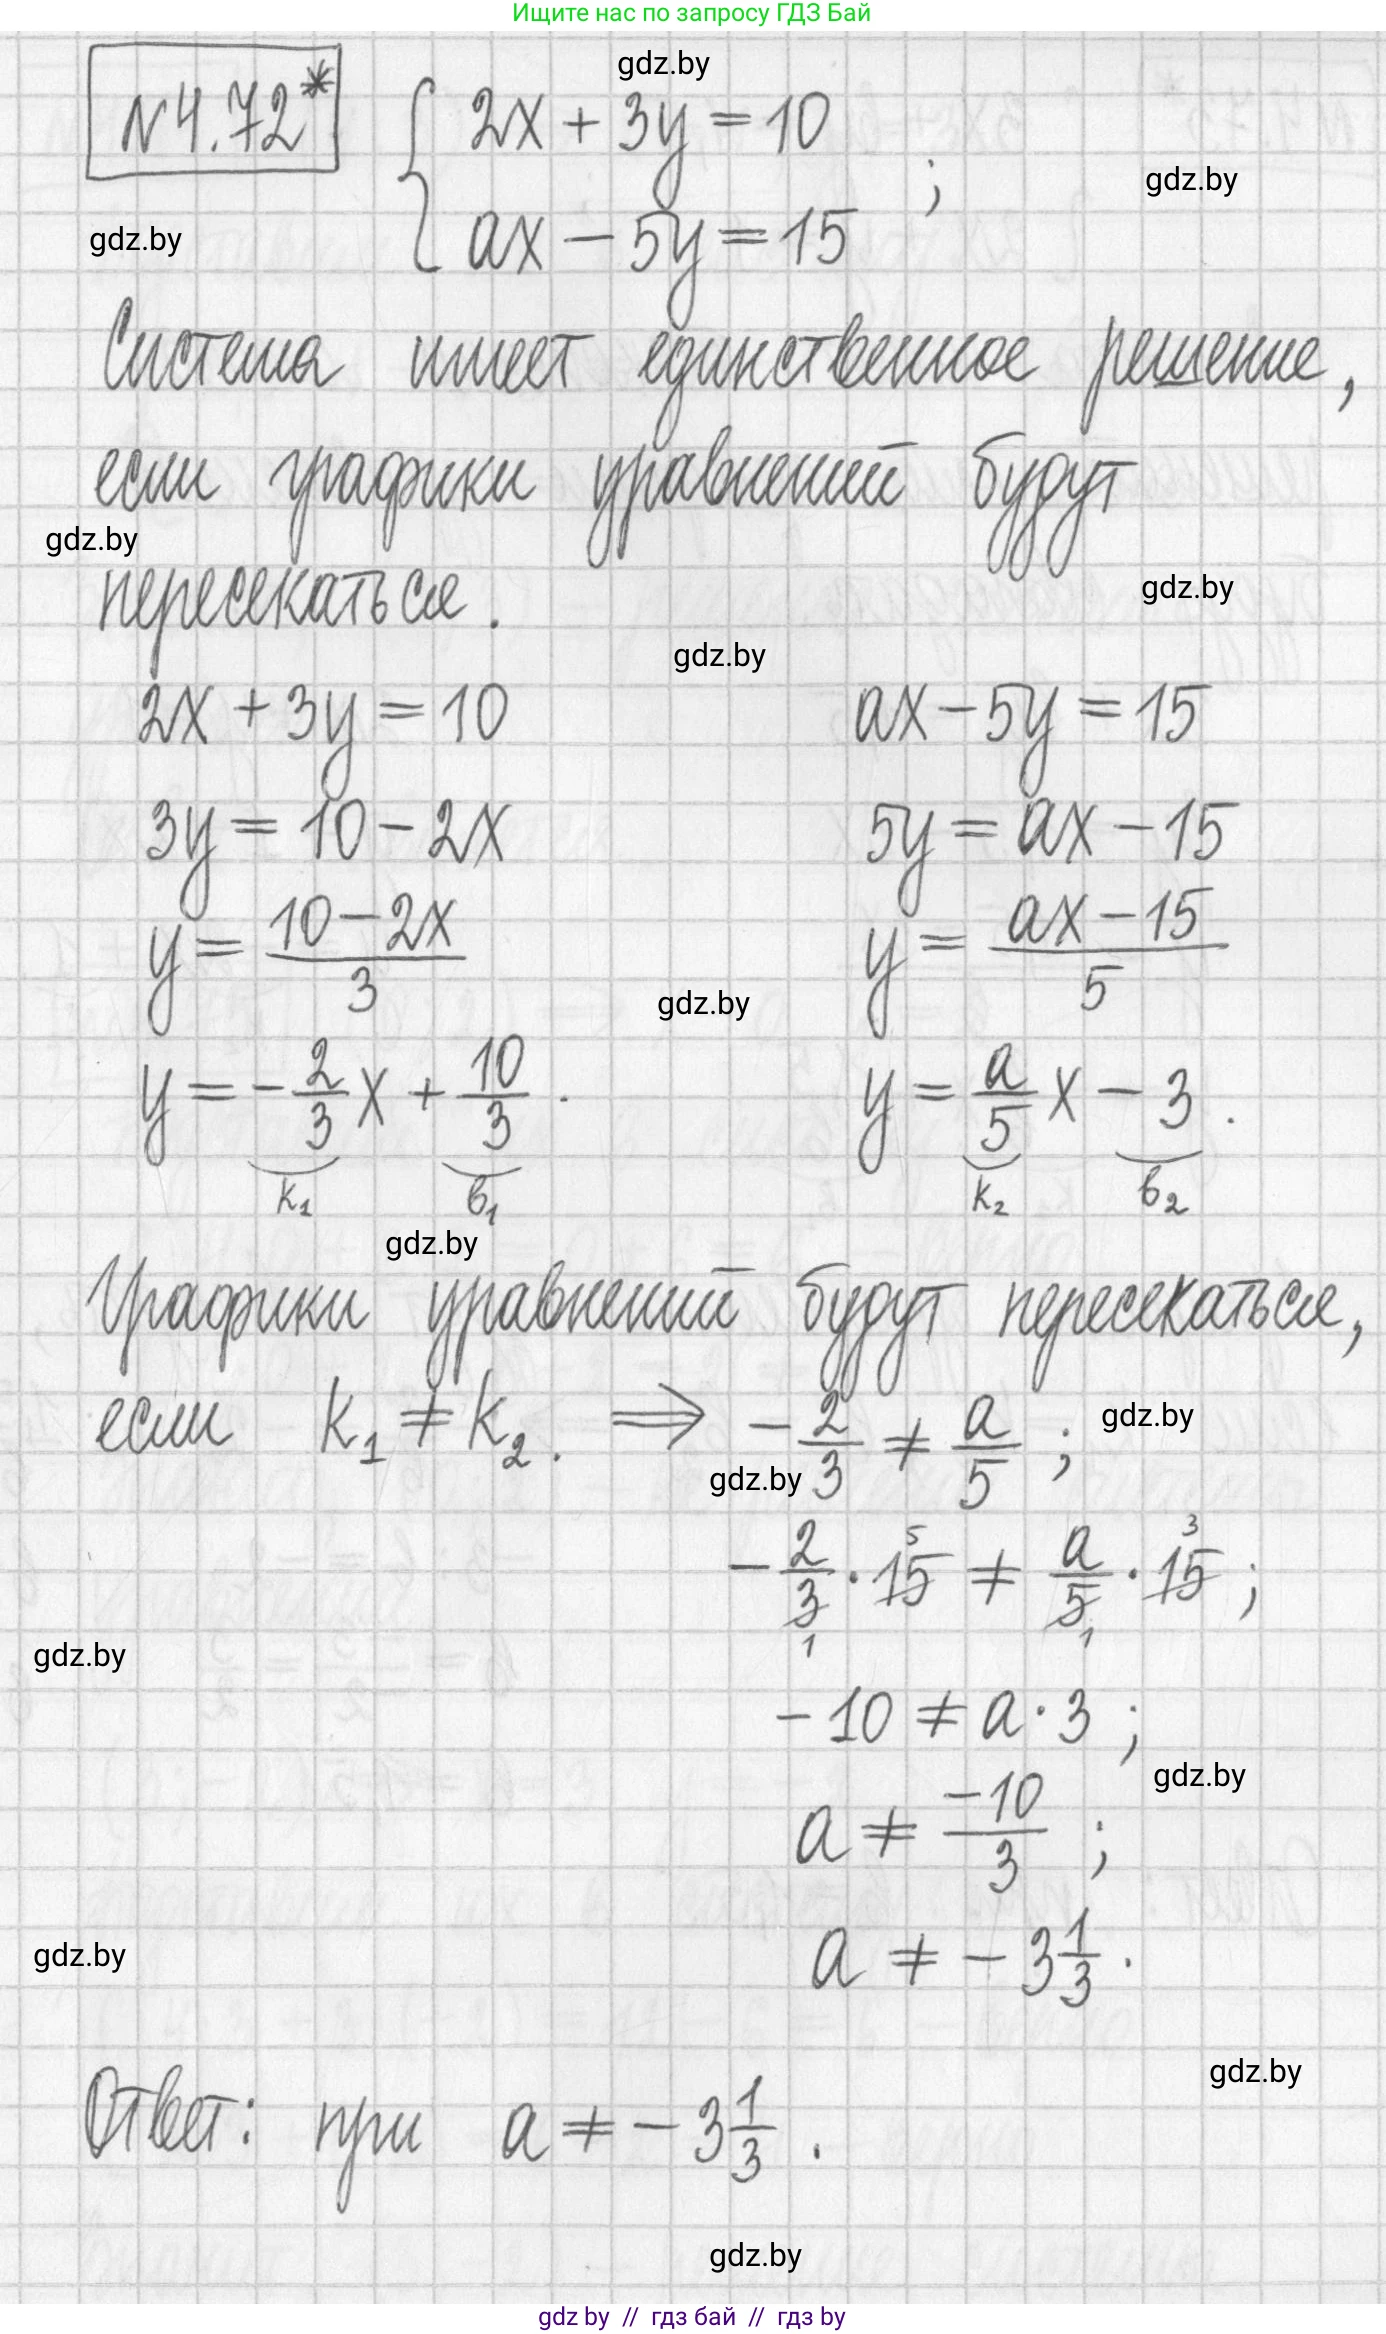 Ищите нас по запросу ГДЗ Бай
gdz.by
N4.72*
{ 2x + 3y = 10
ax − 5y = 15 ;
gdz.by
gdz.by
Система имеет единственное решение,
если графики уравнений будут
gdz.by
пересекаться.
gdz.by
gdz.by
2x + 3y = 10    ax − 5y = 15
3y = 10 − 2x    5y = ax − 15
y = (10 − 2x)/3    y = (ax − 15)/5
gdz.by
y = −2/3 x + 10/3 .    y = a/5 x − 3 .
k₁ b₁    k₂ b₂
gdz.by
Графики уравнений будут пересекаться,
если k₁ ≠ k₂. ⇒ −2/3 ≠ a/5 ;
gdz.by
gdz.by
5 3
−2/3 · 15 ≠ a/5 · 15 ;
1 1
gdz.by
−10 ≠ a · 3 ;
gdz.by
a ≠ −10/3 ;
gdz.by
a ≠ −3 1/3 .
gdz.by
Ответ: при a ≠ −3 1/3 .
gdz.by
gdz by // гдз бай // гдз by